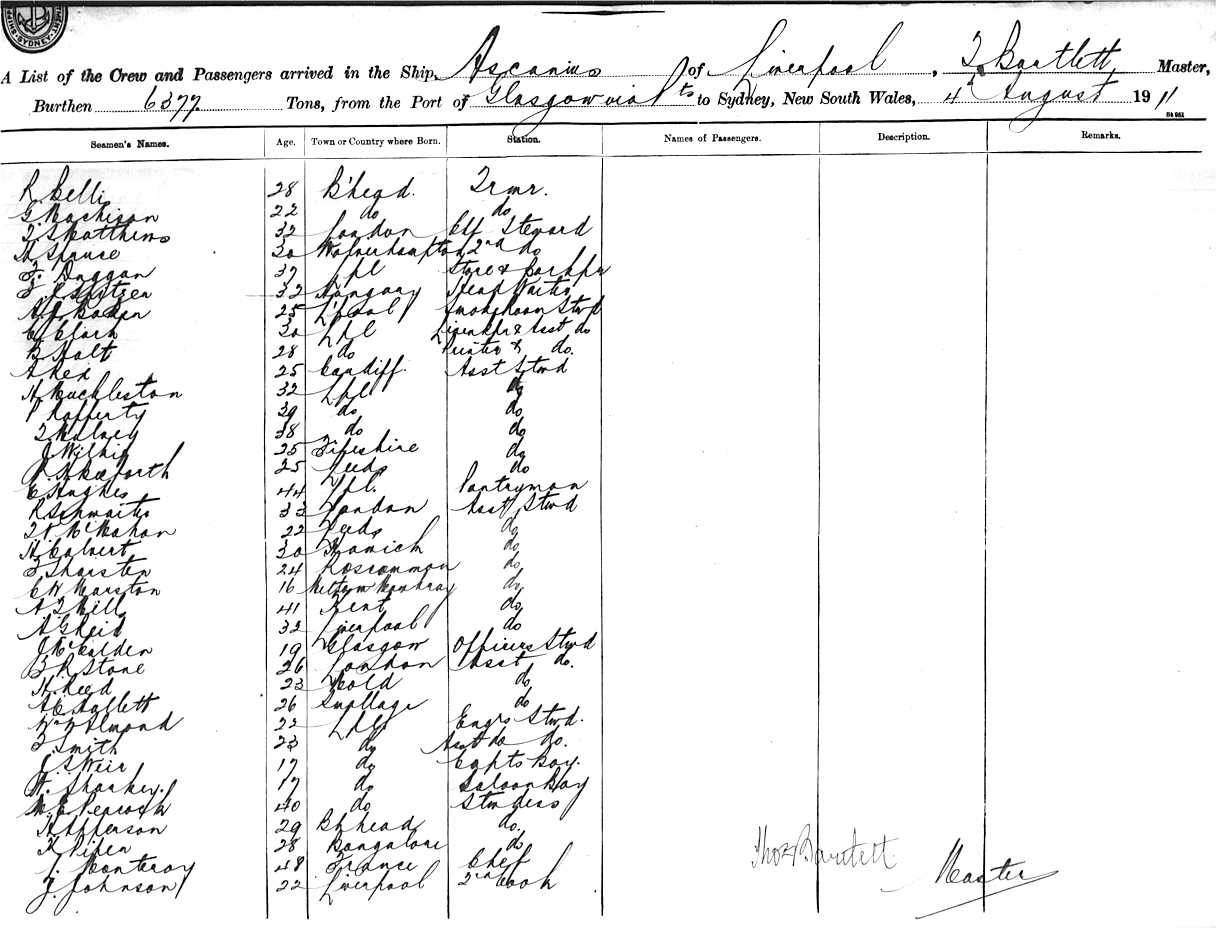 SHIPPING SYDNEY
A List of the Crew and Passengers arrived in the Ship, Ascanius of Liverpool, T Bartlett, Master,
Burthen 6377 Tons, from the Port of Glasgow via Pts to Sydney, New South Wales, 4th August 1911
Seamen's Names. Age. Town or Country where Born. Station. Names of Passengers. Description. Remarks.
R Bellis 28 B'head. Trmr.
G 22 do do
T Matthews 32 London Chf Steward
30 Wolverhampton 2nd do
F. Duggan 37 Lpl Store & Barkpr
32 Hungary Head Waiter
25 L'pool Smokeroom Stwd
C Clark 30 Lpl Linenkpr & Asst do
B Holt 28 do Printer & do.
25 Cardiff. Asst Stwd
H Huckleston 32 Lpl do
P Rafferty 39 do do
38 do do
J Wilkie 25 Fifeshire do
25 Leeds do
E Hughes 44 Lpl. Pantryman
R 33 London Asst Stwd
McMahon 22 Leeds do
H Calvert 30 do
24 Roscommon do
C H Marston 16 Melton Mowbray do
41 Kent do
A G Reid 32 Liverpool do
J McCalden 19 Glasgow Officers Stwd
B R Stone 26 London Asst do.
H Reed 23 Mold do
26 do
Almond 22 Lpl Engrs Stwd.
Smith 23 do Asst do do.
J S Weir 17 do Capts Boy.
W. Sharkey. 17 do Saloon Boy
Peacock 40 do Stwdess
29 B'head do.
28 Bangalore do
48 France Chef
J. Johnson 22 Liverpool 2nd Cook
Thos Bartlett. Master